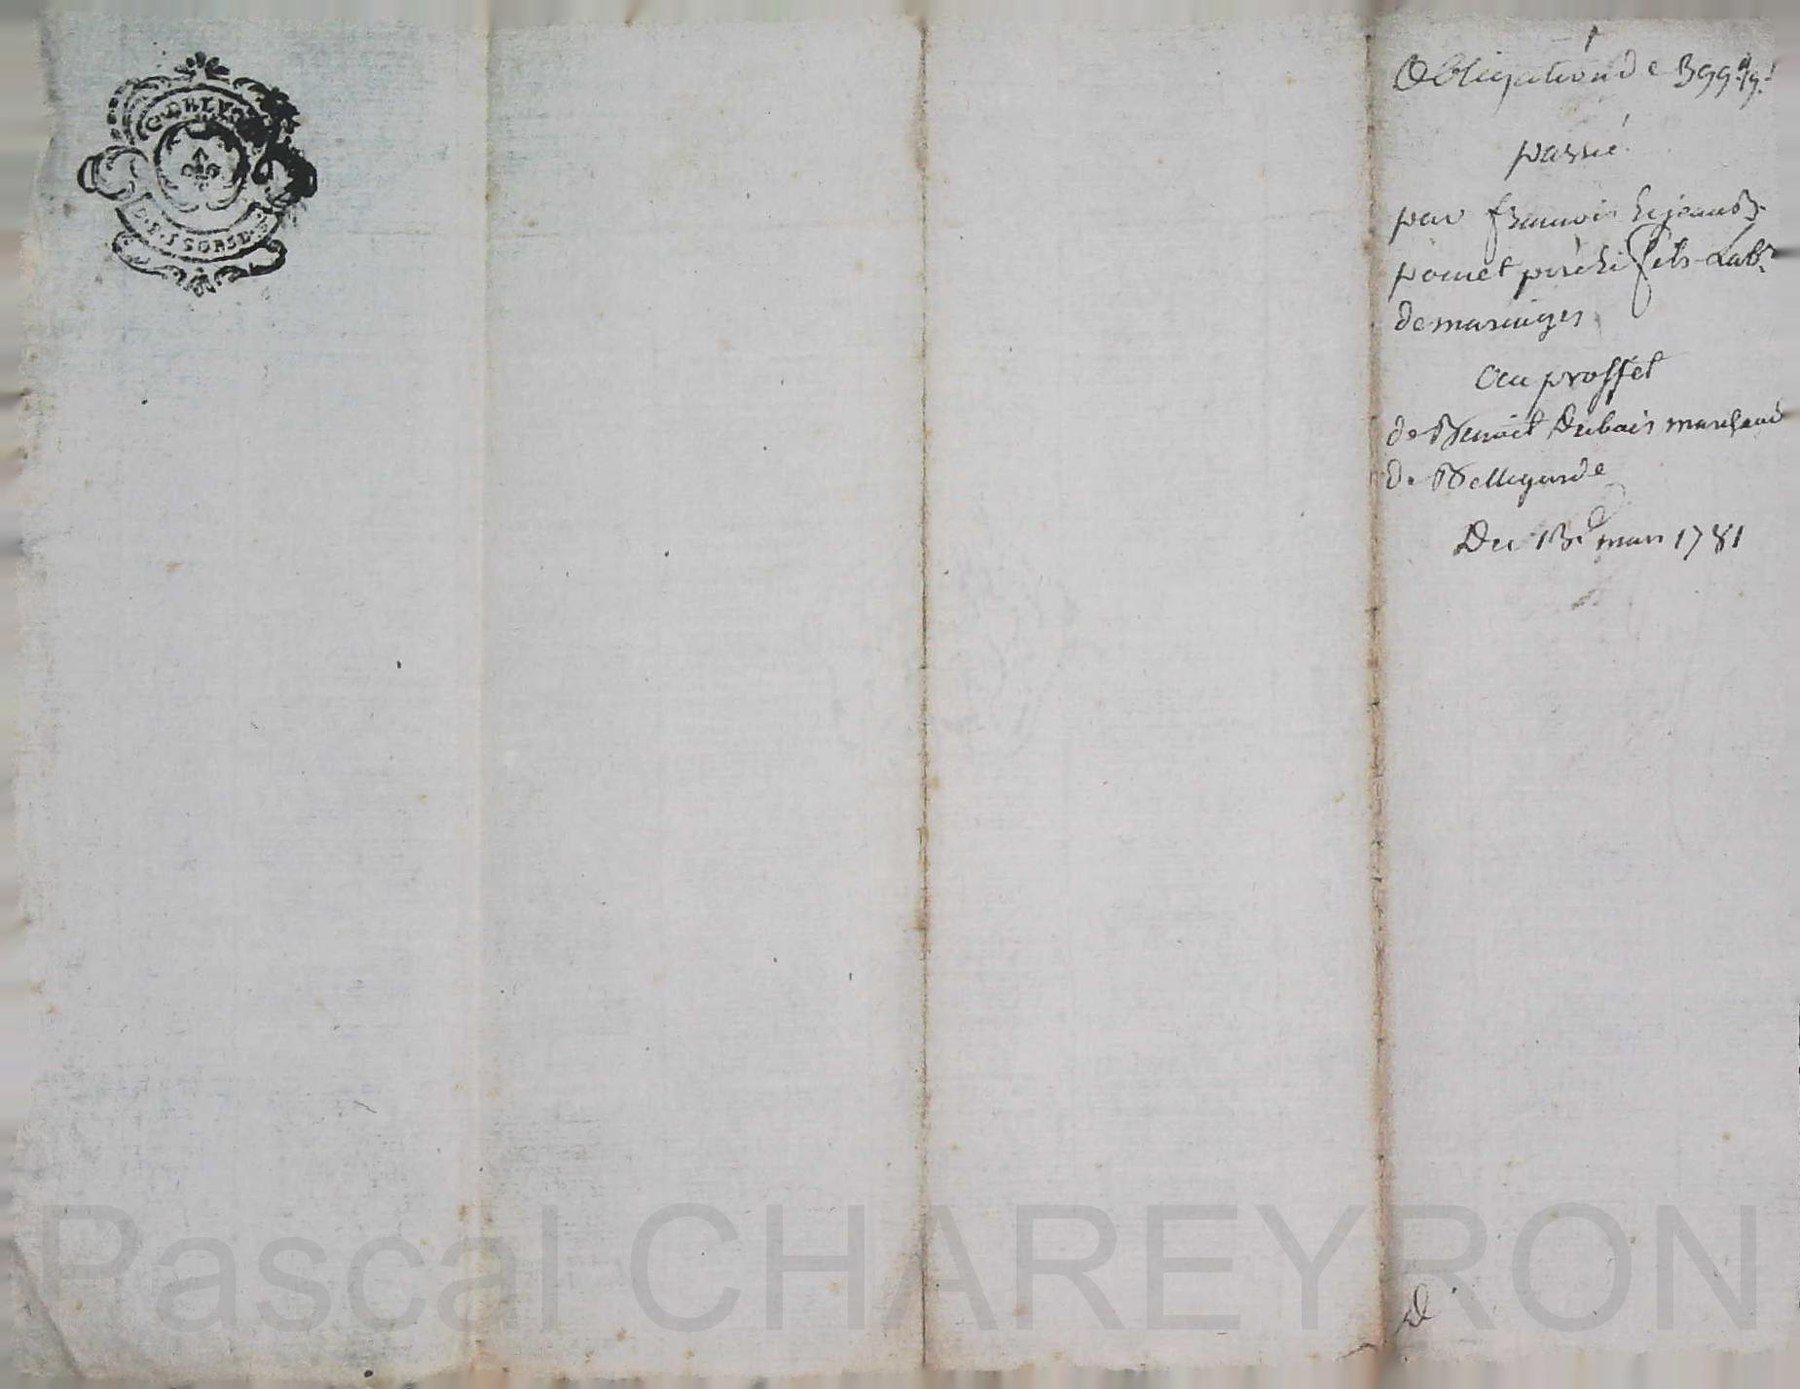 Obligation de 399# 19s
passé
par francois Lejeane
pomet pere & fils Labr
de maringes
au proffet
de Benoit Dubois marchand
de Bellegarde
Du 13e mars 1781
Pascal CHAREYRON